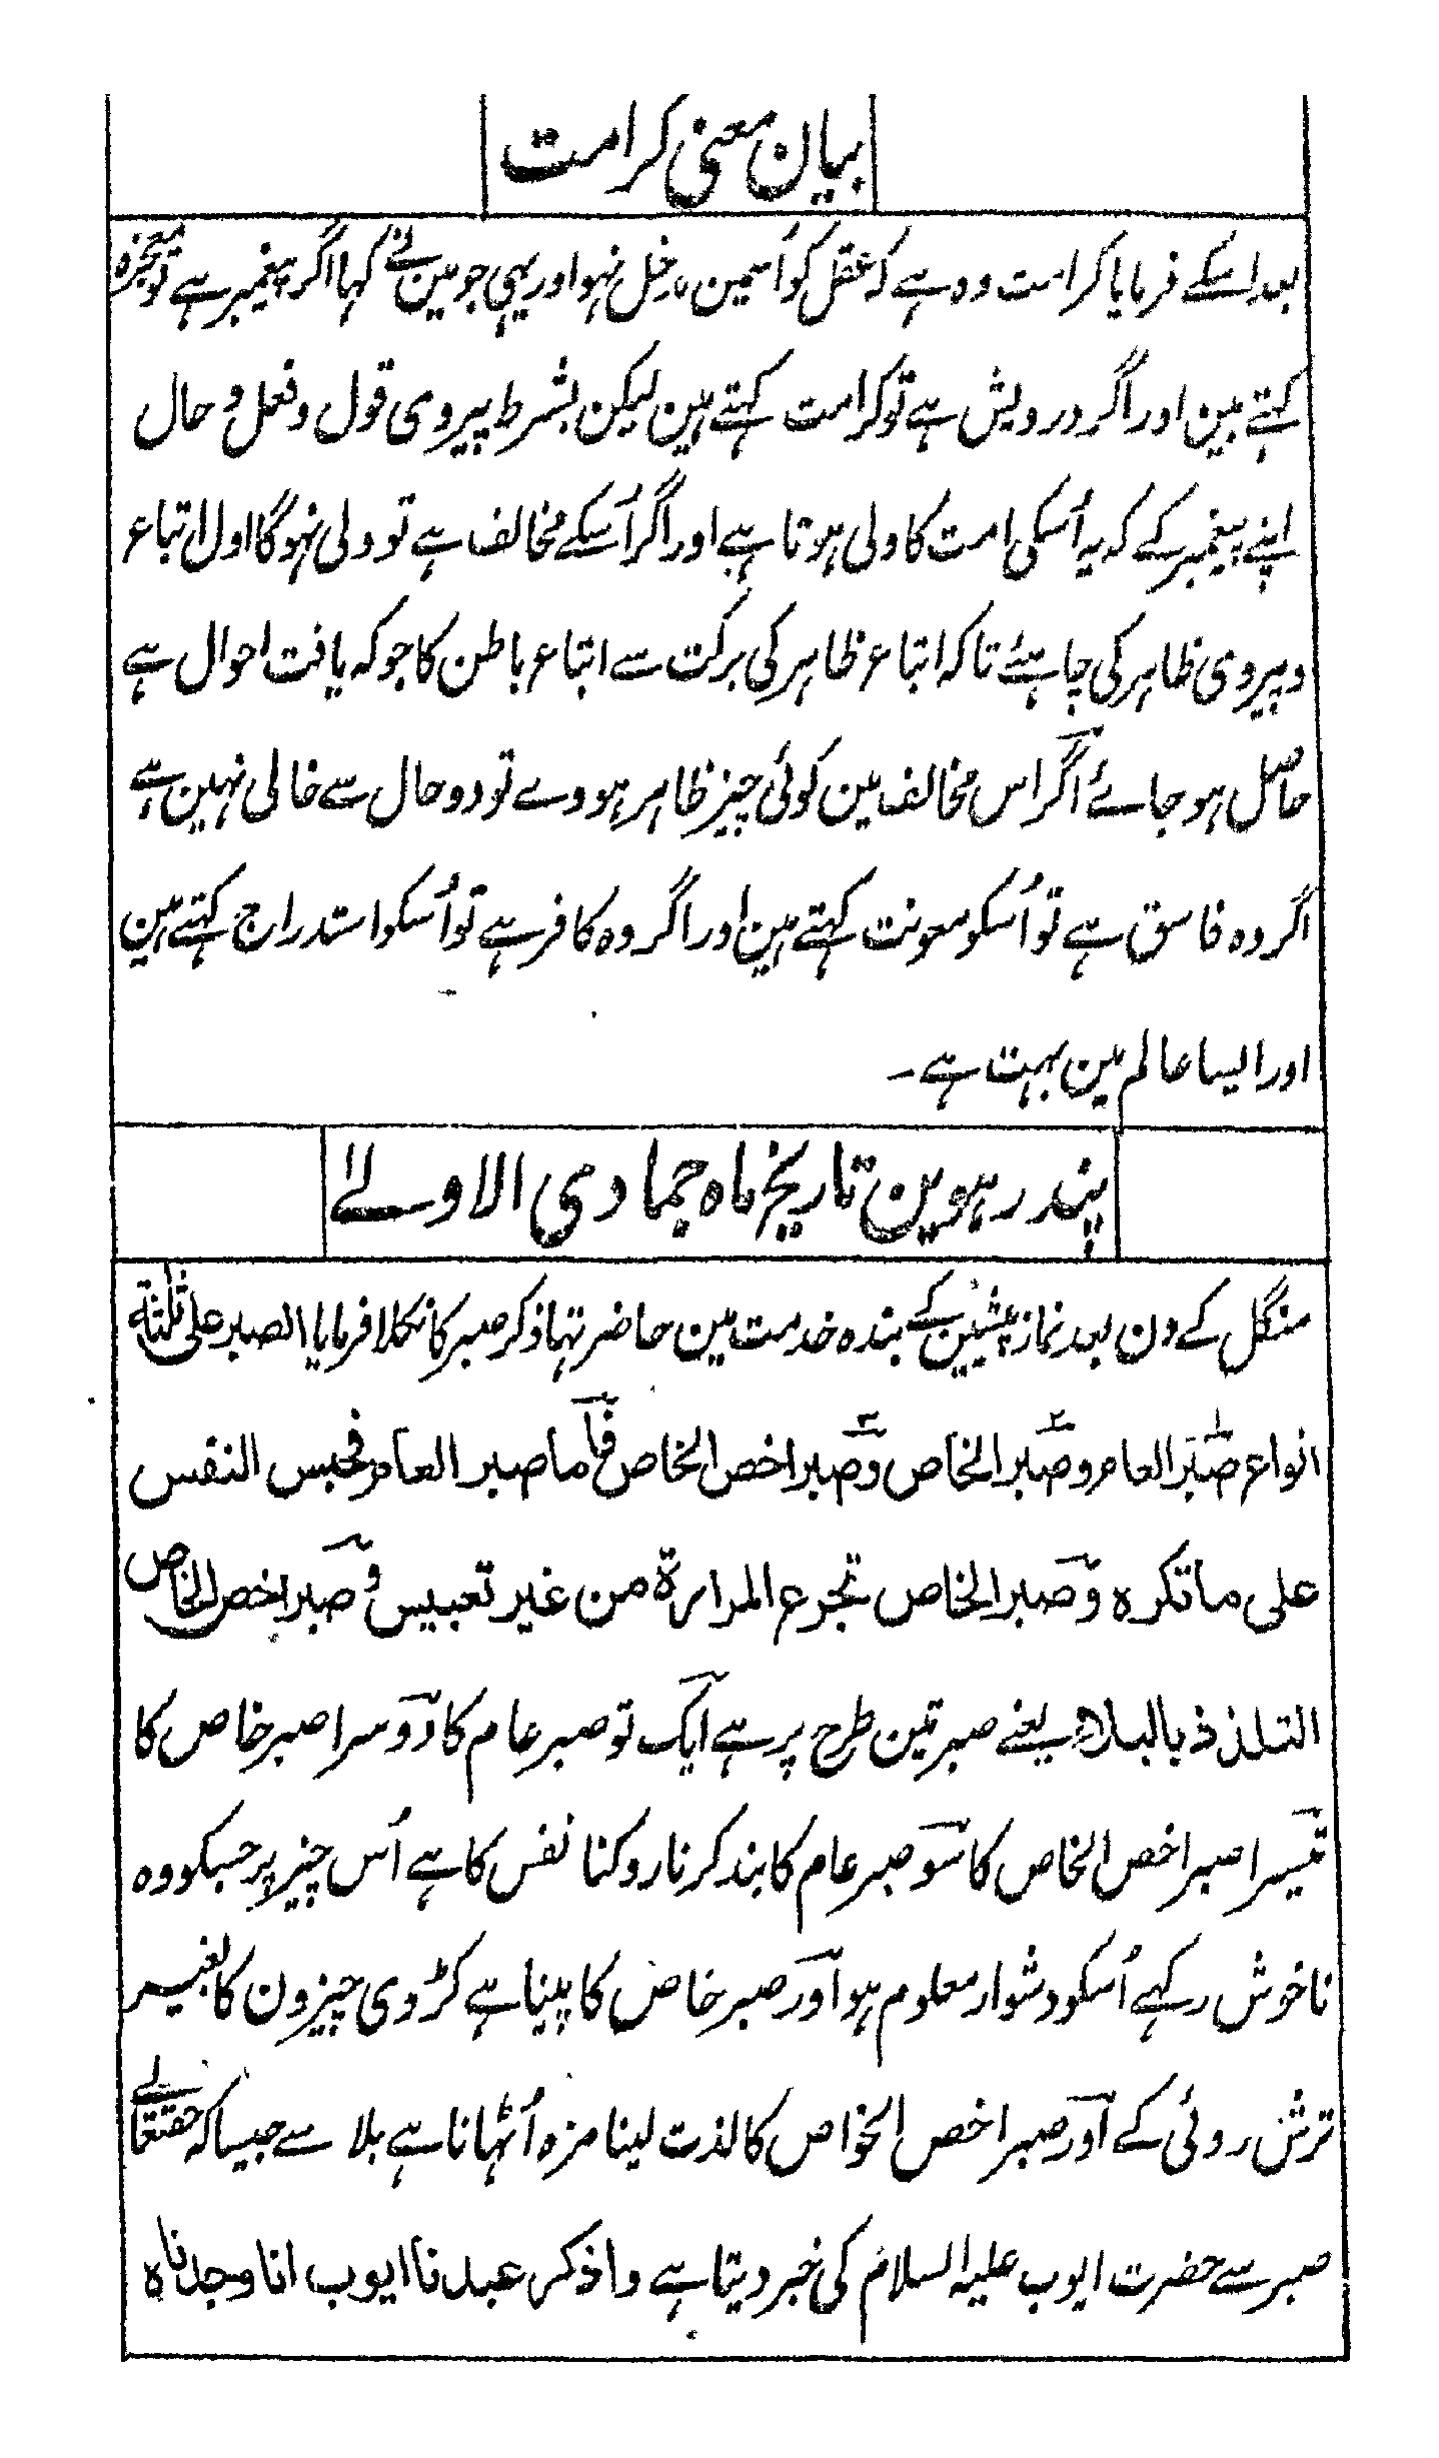 بیان معنی کرامت
بعد اسکے فرمایا کرامت وہ ہے کہ عقل کو اُسمین مدخل نہو اور یہی جو مین نے کہا اگر پیغمبر ہے تو معجزہ
کہتے ہین اور اگر درویش ہے تو کرامت کہتے ہین لیکن بشرط پیروی قول و فعل و حال
اپنے پیغمبر کے کہ یہ اُسکی امت کا ولی ہوتا ہے اور اگر اُسکے مخالف ہے تو ولی نہوگا اول اتباع
و پیروی ظاہر کی چاہئے تاکہ اتباع ظاہر کی برکت سے اتباع باطن کا جو کہ یافت احوال ہے
حاصل ہو جائے اگر اس مخالف مین کوئی چیز ظاہر ہووے تو دو حال سے خالی نہین ہے
اگر وہ فاسق ہے تو اُسکو معونت کہتے ہین اور اگر وہ کافر ہے تو اُسکو استدراج کہتے ہین
اور ایسا عالم مین بہت ہے ۔
پندرہوین تاریخ ماہ جمادی الاولےٰ
منگل کے دن بعد نماز پیشین کے بندہ خدمت مین حاضر تہا ذکر صبر کا نکلا فرمایا الصبر علی ثلثة
انواع صبر العام و صبر الخاص و صبر اخص الخاص فاما صبر العام فحبس النفس
علی ما تکرہ و صبر الخاص تجرع المرارة من غیر تعبیس و صبر اخص الخاص
التلذذ بالبلاء یعنے صبر تین طرح پر ہے ایک تو صبر عام کا دوسرا صبر خاص کا
تیسرا صبر اخص الخاص کا سو صبر عام کا بند کرنا روکنا نفس کا ہے اُس چیز پر جسکو وہ
ناخوش رکہے اُسکو دشوار معلوم ہو اور صبر خاص کا پینا ہے کڑوی چیزون کا بغیر
ترش روئی کے اور صبر اخص الخواص کا لذت لینا مزہ اُٹہانا ہے بلا سے جیسا کہ حقتعالے
صبر سے حضرت ایوب علیہ السلام کی خبر دیتا ہے واذکر عبدنا ایوب انا وجدناہ